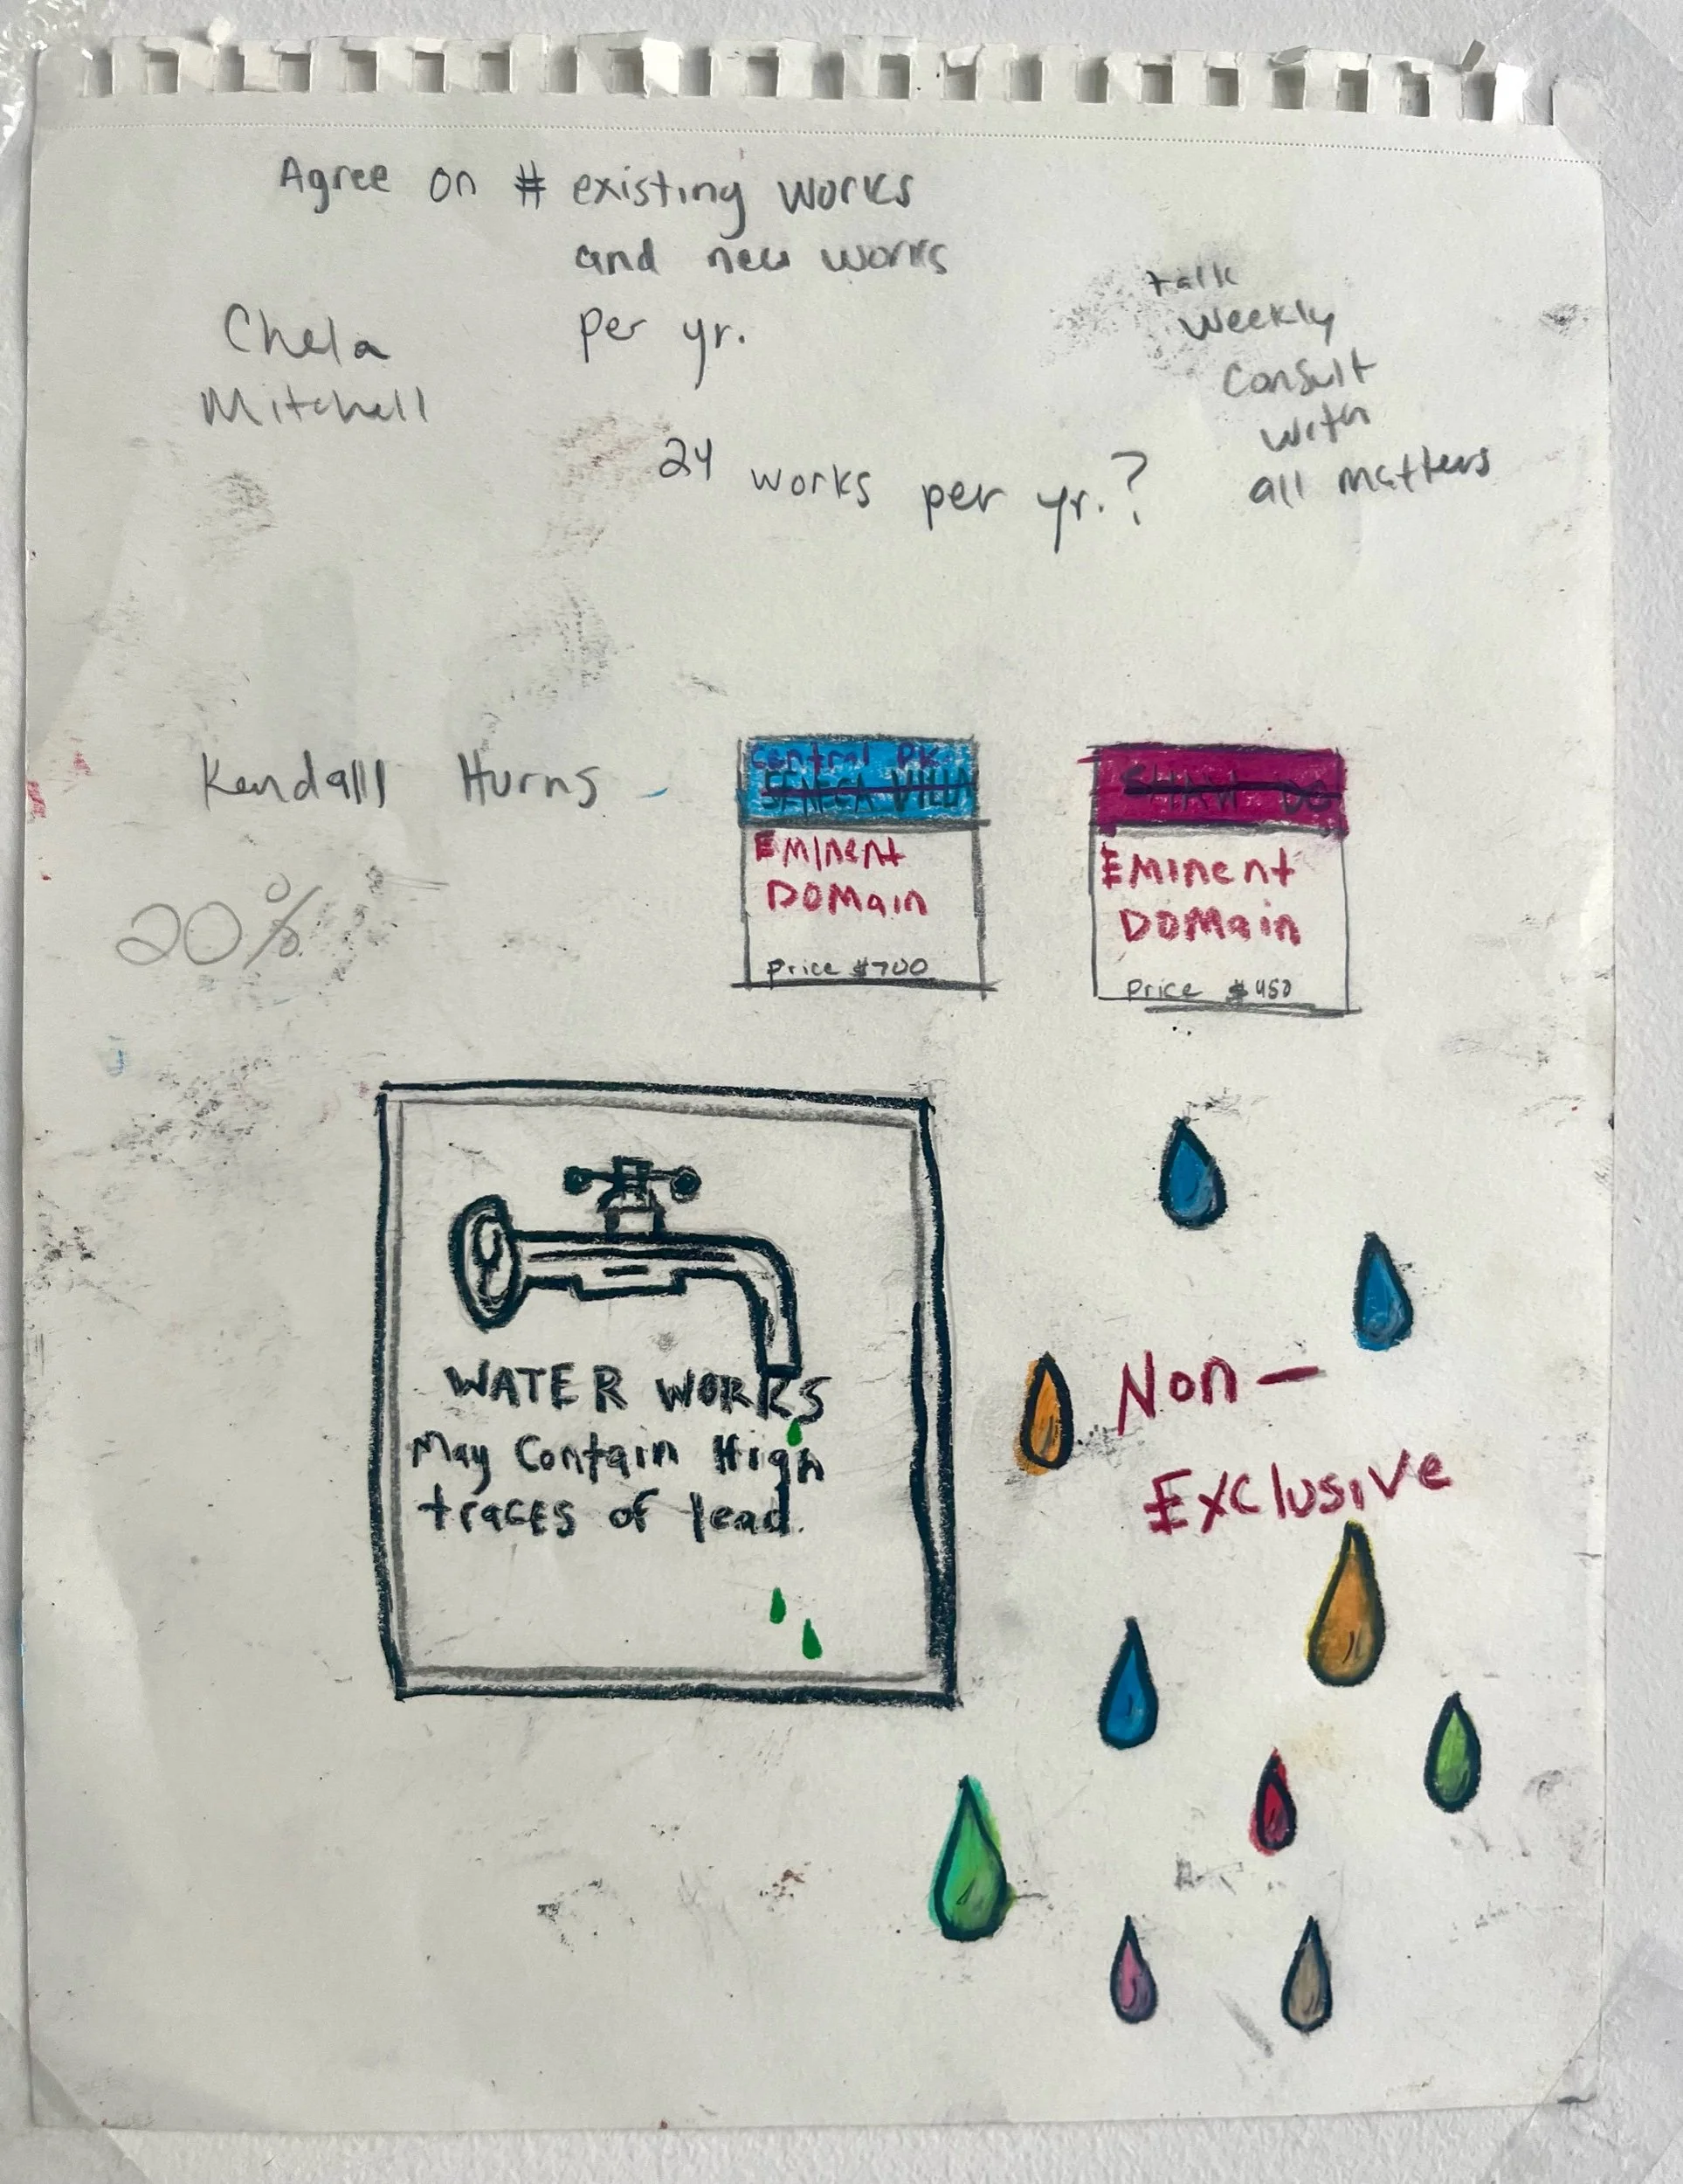 Agree on # existing works
and new works
per yr.
Chela
Mitchell
talk
weekly
Consult
with
all matters
24 works per yr.?
Kendalll Hurns
20%
Central Pk.
SENECA VILLA
EMinent
DOMain
Price $700
SHAW DC
EMinent
DOMain
Price $450
WATER WORKS
May Contain High
traces of lead.
Non-
Exclusive